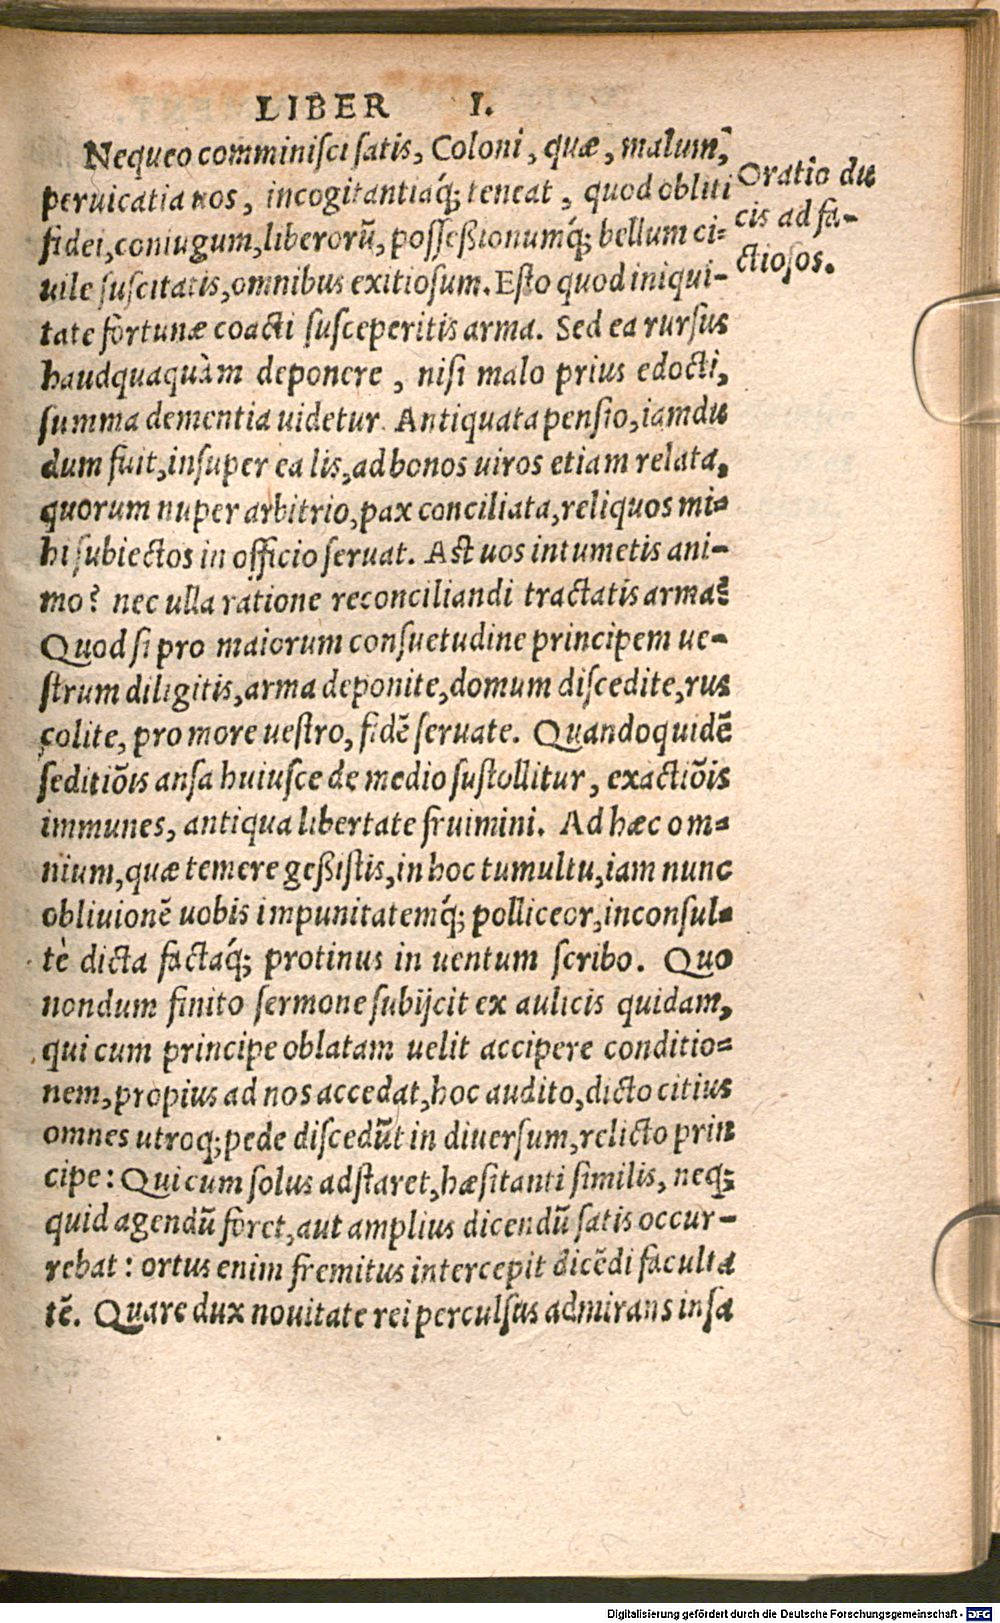 LIBER I.
Nequeo comminisci satis, Coloni, quæ, malum,
peruicatia nos, incogitantiaq́; teneat, quod obliti
fidei, coniugum, liberorũ, possessionumq́; bellum ci-
uile suscitatis, omnibus exitiosum. Esto quod iniqui-
tate fortunæ coacti susceperitis arma. Sed ea rursus
haudquaquàm deponere, nisi malo prius edocti,
summa dementia uidetur. Antiquata pensio, iamdu
dum fuit, insuper ea lis, ad bonos uiros etiam relata,
quorum nuper arbitrio, pax conciliata, reliquos mi-
hi subiectos in officio seruat. Ast uos intumetis ani-
mo? nec ulla ratione reconciliandi tractatis arma?
Quod si pro maiorum consuetudine principem ue-
strum diligitis, arma deponite, domum discedite, rus
colite, pro more uestro, fidẽ seruate. Quandoquidẽ
seditiõis ansa huiusce de medio sustollitur, exactiõis
immunes, antiqua libertate fruimini. Ad hæc om-
nium, quæ temere geßistis, in hoc tumultu, iam nunc
obliuionẽ uobis impunitatemq́; polliceor, inconsul-
tè dicta factaq́; protinus in uentum scribo. Quo
nondum finito sermone subijcit ex aulicis quidam,
qui cum principe oblatam uelit accipere conditio-
nem, propius ad nos accedat, hoc audito, dicto citius
omnes utroq; pede discedũt in diuersum, relicto prin
cipe: Qui cum solus adstaret, hæsitanti similis, neq;
quid agendũ foret, aut amplius dicendũ satis occur-
rebat: ortus enim fremitus intercepit dicẽdi faculta
tẽ. Quare dux nouitate rei perculsus admirans insa
Oratio du
cis ad fa-
ctiosos.
Digitalisierung gefördert durch die Deutsche Forschungsgemeinschaft - DFG